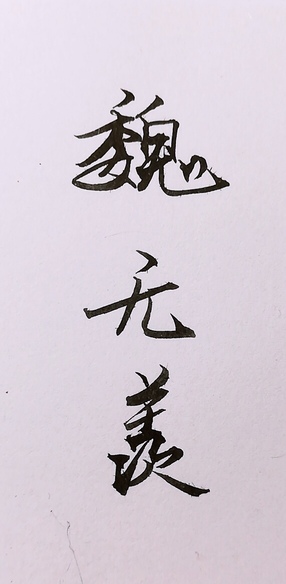 魏无羡